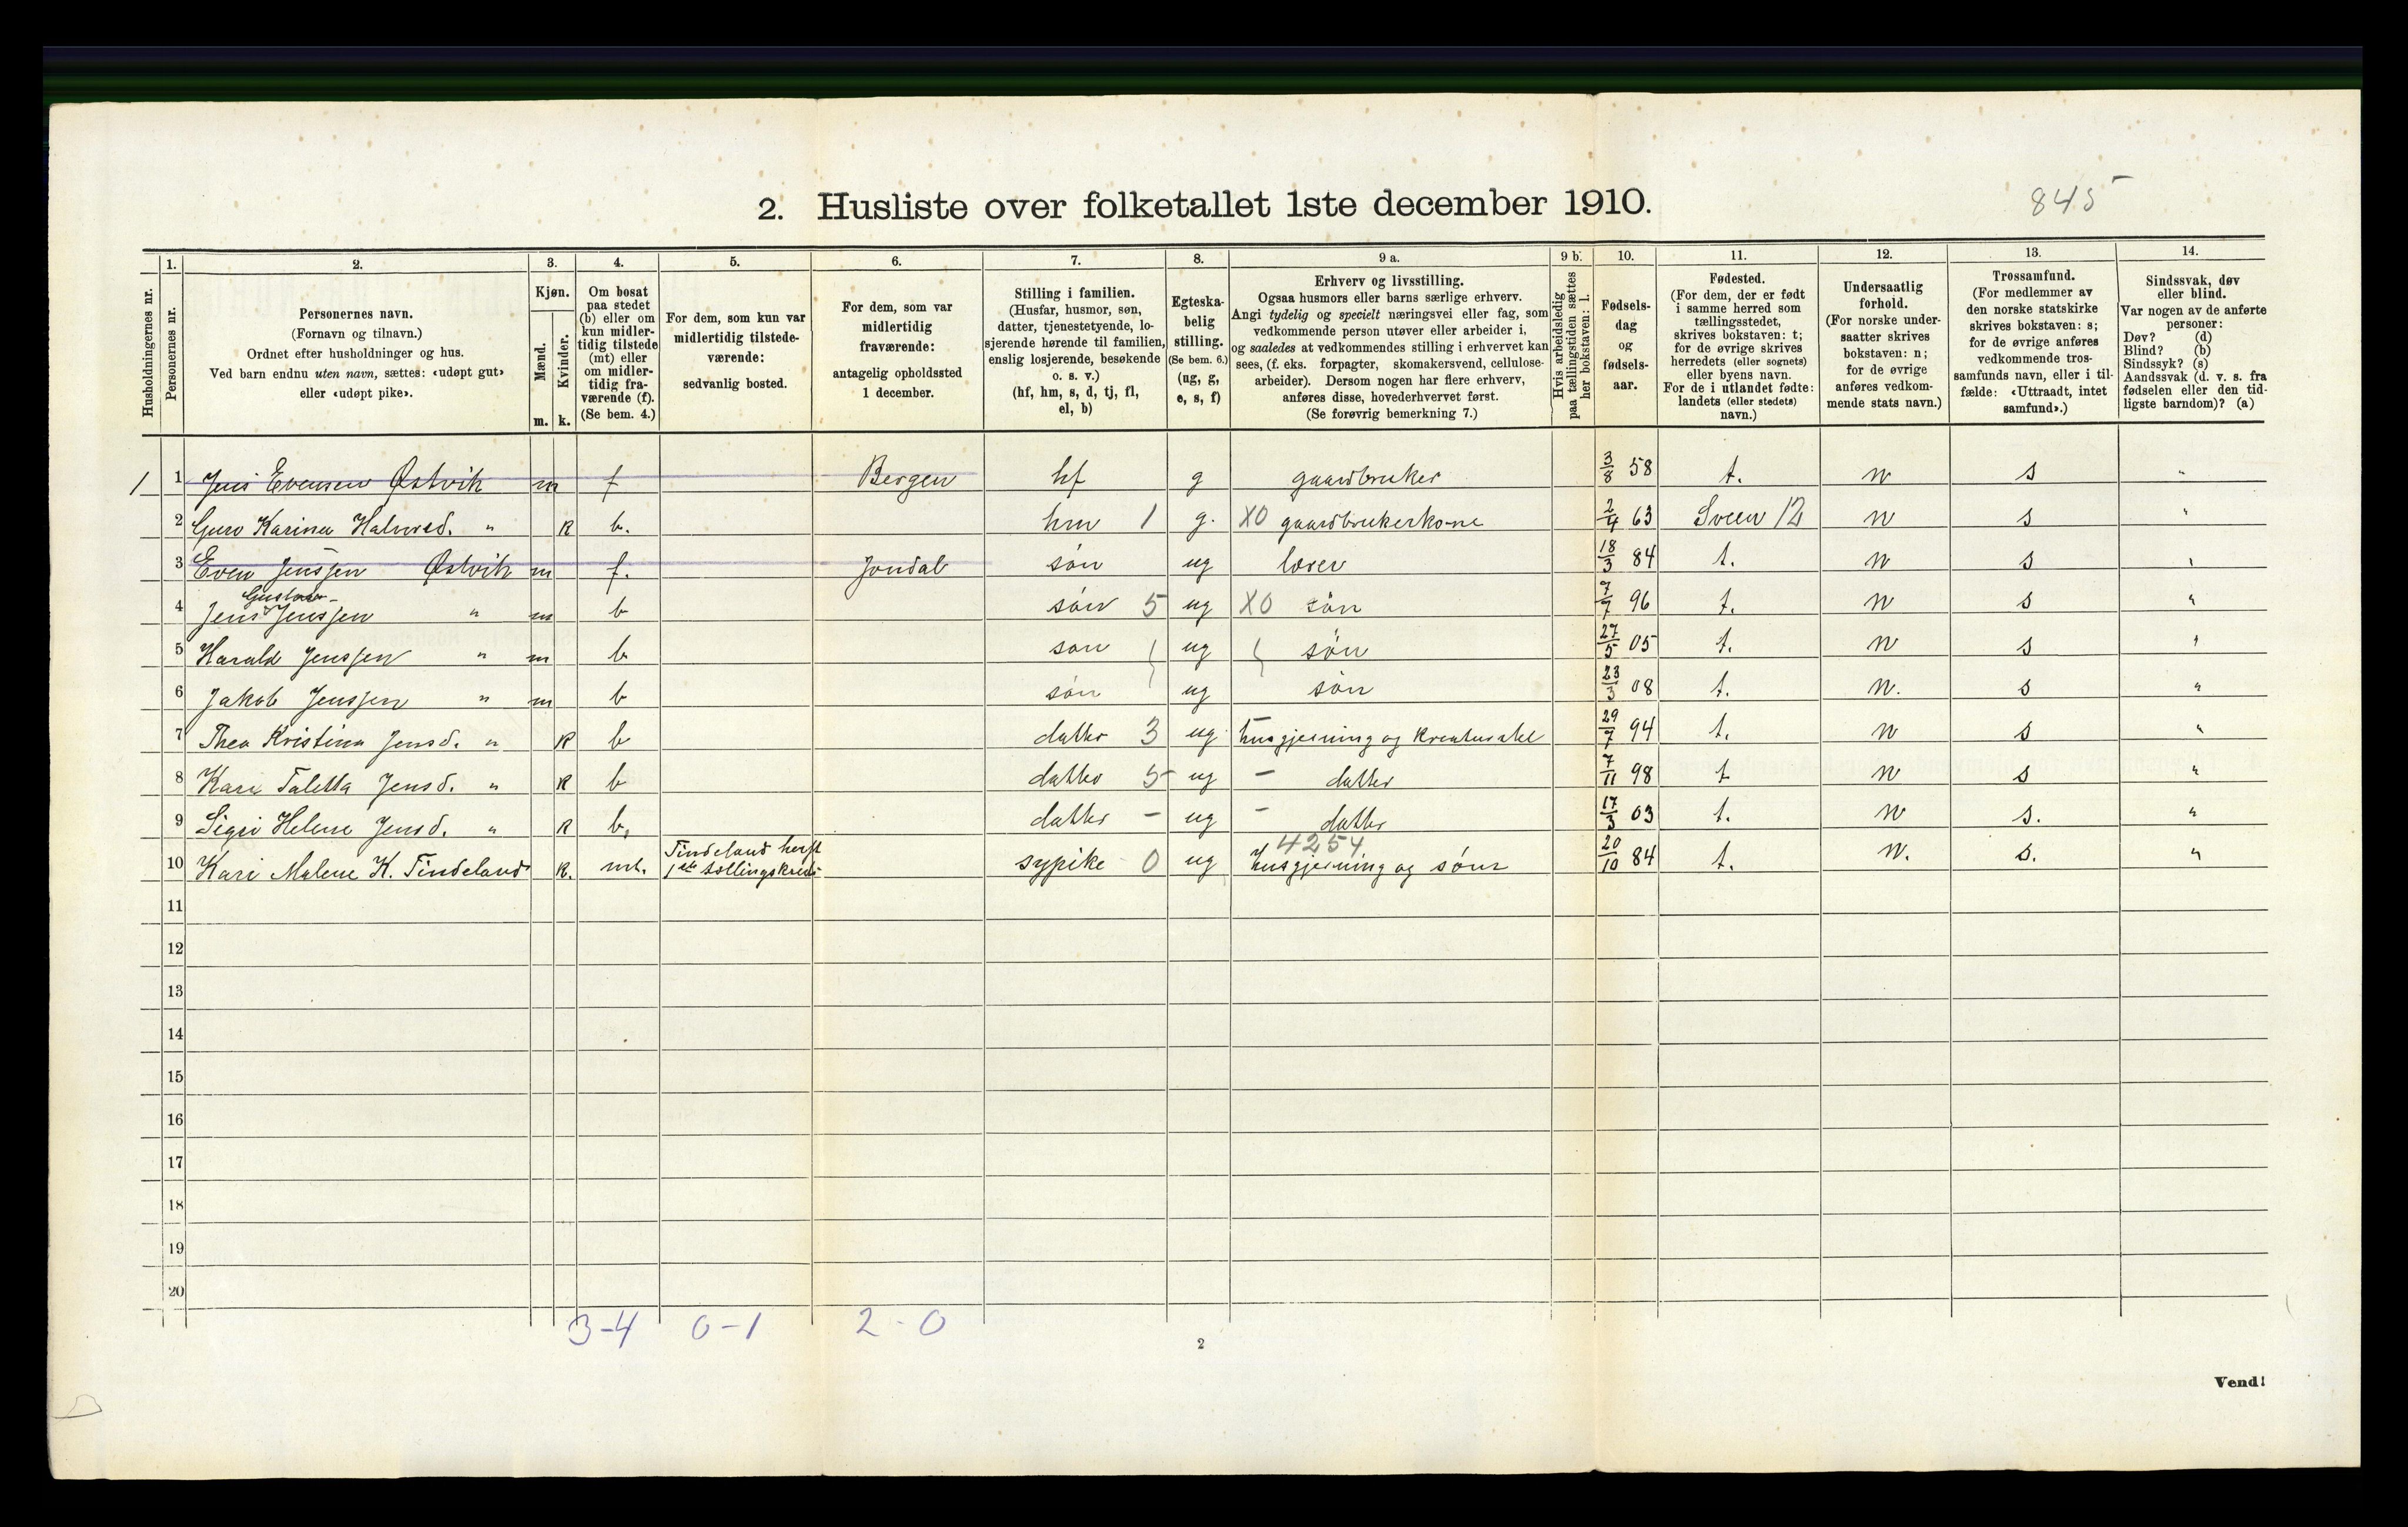 2. Husliste over folketallet 1ste december 1910.
845
Husholdningernes nr.
1.
Personernes nr.
2.
Personernes navn.
(Fornavn og tilnavn.)
Ordnet efter husholdninger og hus.
Ved barn endnu uten navn, sættes: «udøpt gut»
eller «udøpt pike».
3.
Kjøn.
Mænd.
Kvinder.
m. k.
4.
Om bosat
paa stedet
(b) eller om
kun midler-
tidig tilstede
(mt) eller
om midler-
tidig fra-
værende (f).
(Se bem. 4.)
5.
For dem, som kun var
midlertidig tilstede-
værende:
sedvanlig bosted.
6.
For dem, som var
midlertidig
fraværende:
antagelig opholdssted
1 december.
7.
Stilling i familien.
(Husfar, husmor, søn,
datter, tjenestetyende, lo-
sjerende hørende til familien,
enslig losjerende, besøkende
o. s. v.)
(hf, hm, s, d, tj, fl,
el, b)
8.
Egteska-
belig
stilling.
(Se bem. 6.)
(ug, g,
e, s, f)
9 a.
Erhverv og livsstilling.
Ogsaa husmors eller barns særlige erhverv.
Angi tydelig og specielt næringsvei eller fag, som
vedkommende person utøver eller arbeider i,
og saaledes at vedkommendes stilling i erhvervet kan
sees, (f. eks. forpagter, skomakersvend, cellulose-
arbeider). Dersom nogen har flere erhverv,
anføres disse, hovederhvervet først.
(Se forøvrig bemerkning 7.)
9 b.
Hvis arbeidsledig
paa tællingstiden sættes
her bokstaven: l.
10.
Fødsels-
dag
og
fødsels-
aar.
11.
Fødested.
(For dem, der er født
i samme herred som
tællingsstedet,
skrives bokstaven: t;
for de øvrige skrives
herredets (eller sognets)
eller byens navn.
For de i utlandet fødte:
landets (eller stedets)
navn.)
12.
Undersaatlig
forhold.
(For norske under-
saatter skrives
bokstaven: n;
for de øvrige
anføres vedkom-
mende stats navn.)
13.
Trossamfund.
(For medlemmer av
den norske statskirke
skrives bokstaven: s;
for de øvrige anføres
vedkommende tros-
samfunds navn, eller i til-
fælde: «Uttraadt, intet
samfund».)
14.
Sindssvak, døv
eller blind.
Var nogen av de anførte
personer:
Døv? (d)
Blind? (b)
Sindssyk? (s)
Aandssvak (d. v. s. fra
fødselen eller den tid-
ligste barndom)? (a)
1 1 Jens Evensen Østvik m f Bergen hf g gaardbruker 3/8 58 t. n s "
2 Guro Karina Halvorsd. " k b. hm 1 g. XO gaardbrukerkone 2/4 63 Sveen 12 n s "
3 Even Jenssen Østvik m f. Jondal søn ug lærer 18/3 84 t. n s "
Gustav
4 Jens Jenssen " m b søn 5 ug XO søn 7/7 96 t. n s "
5 Harald Jenssen " m b søn ug søn 27/5 05 t. n s "
6 Jakob Jenssen " m b søn ug søn 23/3 08 t. n. s "
7 Thea Kristina Jensd. " k b datter 3 ug husgjerning og kreaturstel 29/7 94 t. n s "
8 Kari Taletta Jensd. " k b datter 5 ug - datter 7/11 98 t n s "
9 Sigri Helene Jensd. " k b. datter - ug - datter 17/3 03 t. n s. "
4254
10 Kari Malene K. Tindeland k. mt. Tindeland herst
1ste tællingskreds sypike 0 ug husgjerning og søm 20/10 84 t. n. s. "
11
12
13
14
15
16
17
18
19
20
3-4 0-1 2-0
2
Vend!